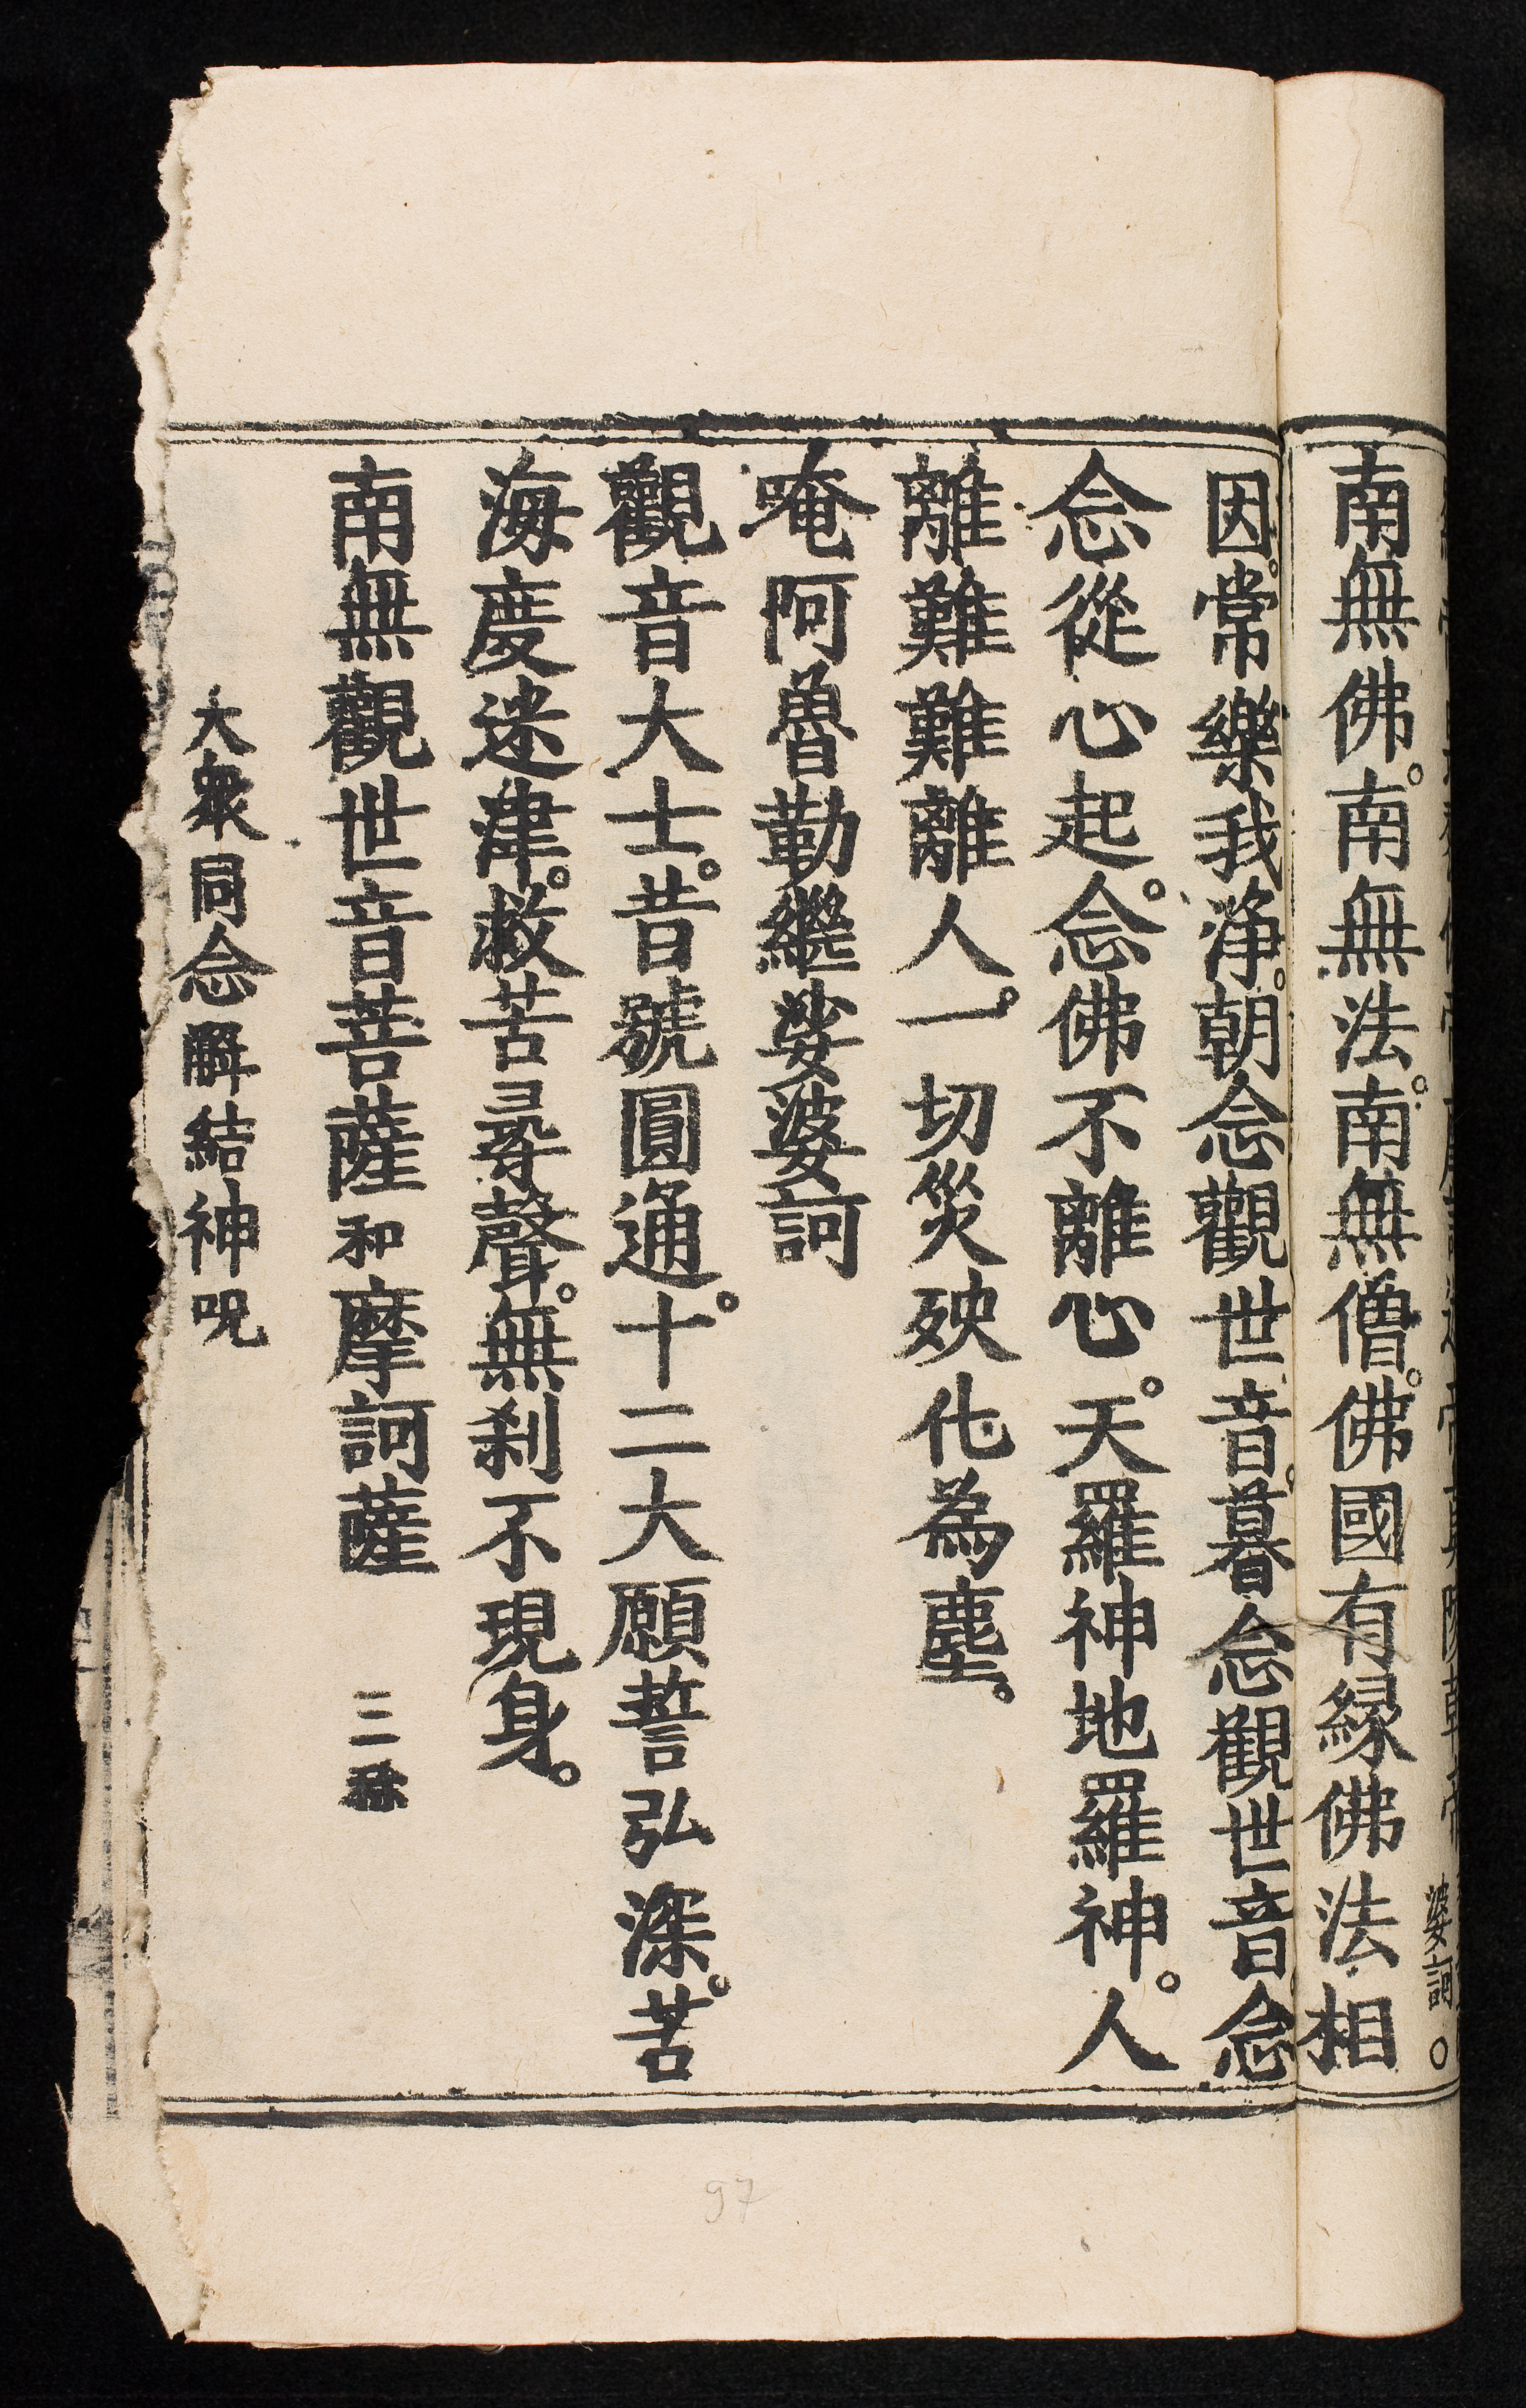 婆訶。
南無佛。南無法。南無僧。佛國有緣佛法相
因。常樂我淨。朝念觀世音。暮念觀世音。念
念從心起。念佛不離心。天羅神地羅神。人
離難難離人。一切災殃化為塵。
唵阿魯勒繼娑婆訶
觀音大士。昔號圓通。十二大願誓弘深。苦
海度迷津。救苦尋聲。無剎不現身。
南無觀世音菩薩和摩訶薩 三稱
大衆同念解結神呪
97